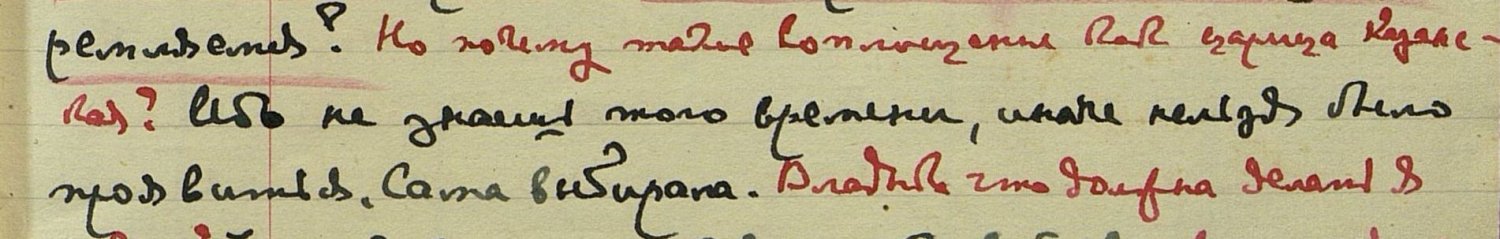 ремляемся? Но почему такие воплощение как царица Казанс-
кая? Ибо не знаешь того времени, иначе нельзя было
проявиться. Сама выбирала. Владыко что должна делать я